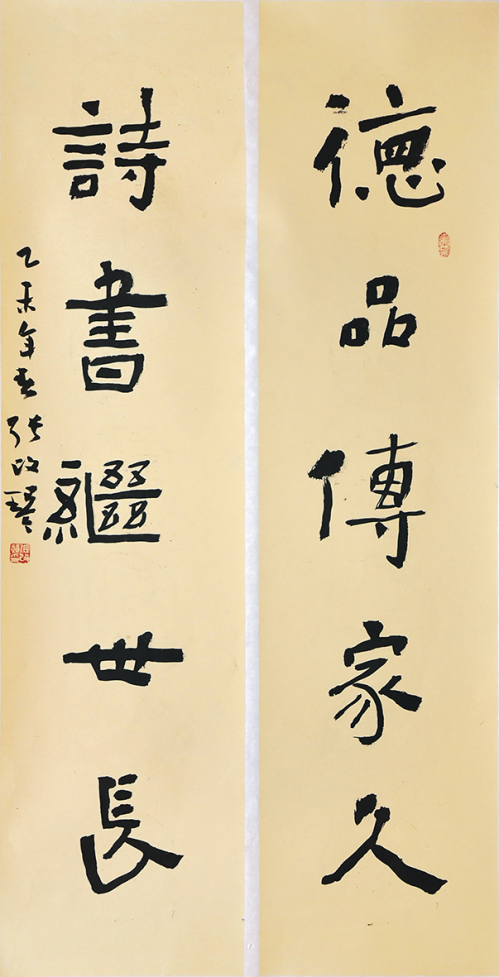 德品傳家久
詩書繼世長
乙未年春 張政